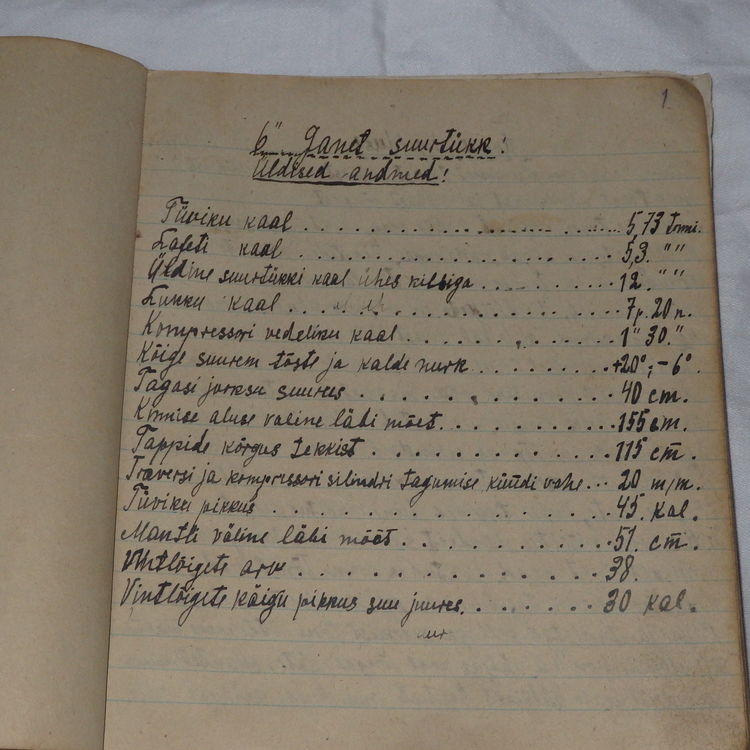 1
6" Ganet suurtükk!
Üldised andmed!
Tüviku kaal . . . . . . . . . . . . . . . . . . . . 5,73 tonni.
Lafeti kaal . . . . . . . . . . . . . . . . . . . . 5,3. " "
Üldine suurtükki kaal ühes kilbiga . . . . . . 12. " "
Lukku kaal . . . . . . . . . . . . . . . . 7p. 20 n.
Kompressori vedeliku kaal . . . . . . . . . . 1" 30."
Kõige suurem tõste ja kalde nurk . . . . . . . +20°; -6°.
Tagasi jooksu suurus . . . . . . . . . . . . 40 cm.
Kinnise aluse väline läbi mõet . . . . . . . . 155 cm.
Tappide kõrgus tekkist . . . . . . . . . . . 115 cm.
Traversi ja kompressori silindri tagumise küüdi vahe . . . 20 m/m.
Tüviku pikkus . . . . . . . . . . . . . . . . 45. kal.
Mantli väline läbi mõõt . . . . . . . . . . 51. cm.
Vintlõigete arv . . . . . . . . . . . . . . 38.
Vintlõigete käigu pikkus suu juures . . . . . . . 30 kal.